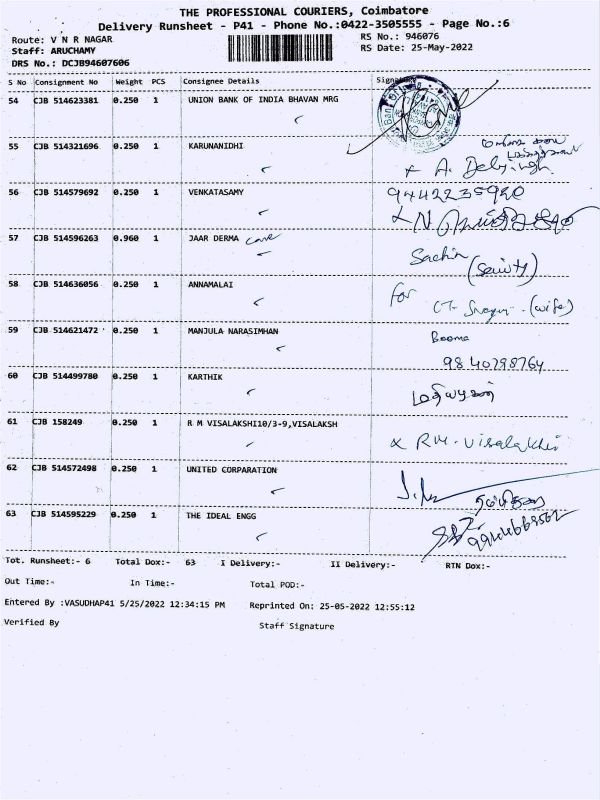 THE PROFESSIONAL COURIERS, Coimbatore
Delivery Runsheet - P41 - Phone No.:0422-3505555 - Page No.:6
Route: V N R NAGAR RS No.: 946076
Staff: ARUCHAMY RS Date: 25-May-2022
DRS No.: DCJB94607606
S No Consignment No Weight PCS Consignee Details Signature
54 CJB 514623381 0.250 1 UNION BANK OF INDIA BHAVAN MRG
55 CJB 514321696 0.250 1 KARUNANIDHI
56 CJB 514579692 0.250 1 VENKATASAMY
57 CJB 514596263 0.960 1 JAAR DERMA care Sachin
58 CJB 514636056 0.250 1 ANNAMALAI for (wife)
59 CJB 514621472 0.250 1 MANJULA NARASIMHAN Booma
9840798764
60 CJB 514499780 0.250 1 KARTHIK
61 CJB 158249 0.250 1 R M VISALAKSHI10/3-9,VISALAKSH
62 CJB 514572498 0.250 1 UNITED CORPARATION
63 CJB 514595229 0.250 1 THE IDEAL ENGG
Tot. Runsheet:- 6 Total Dox:- 63 I Delivery:- II Delivery:- RTN Dox:-
Out Time:- In Time:- Total POD:-
Entered By :VASUDHAP41 5/25/2022 12:34:15 PM Reprinted On: 25-05-2022 12:55:12
Verified By Staff Signature